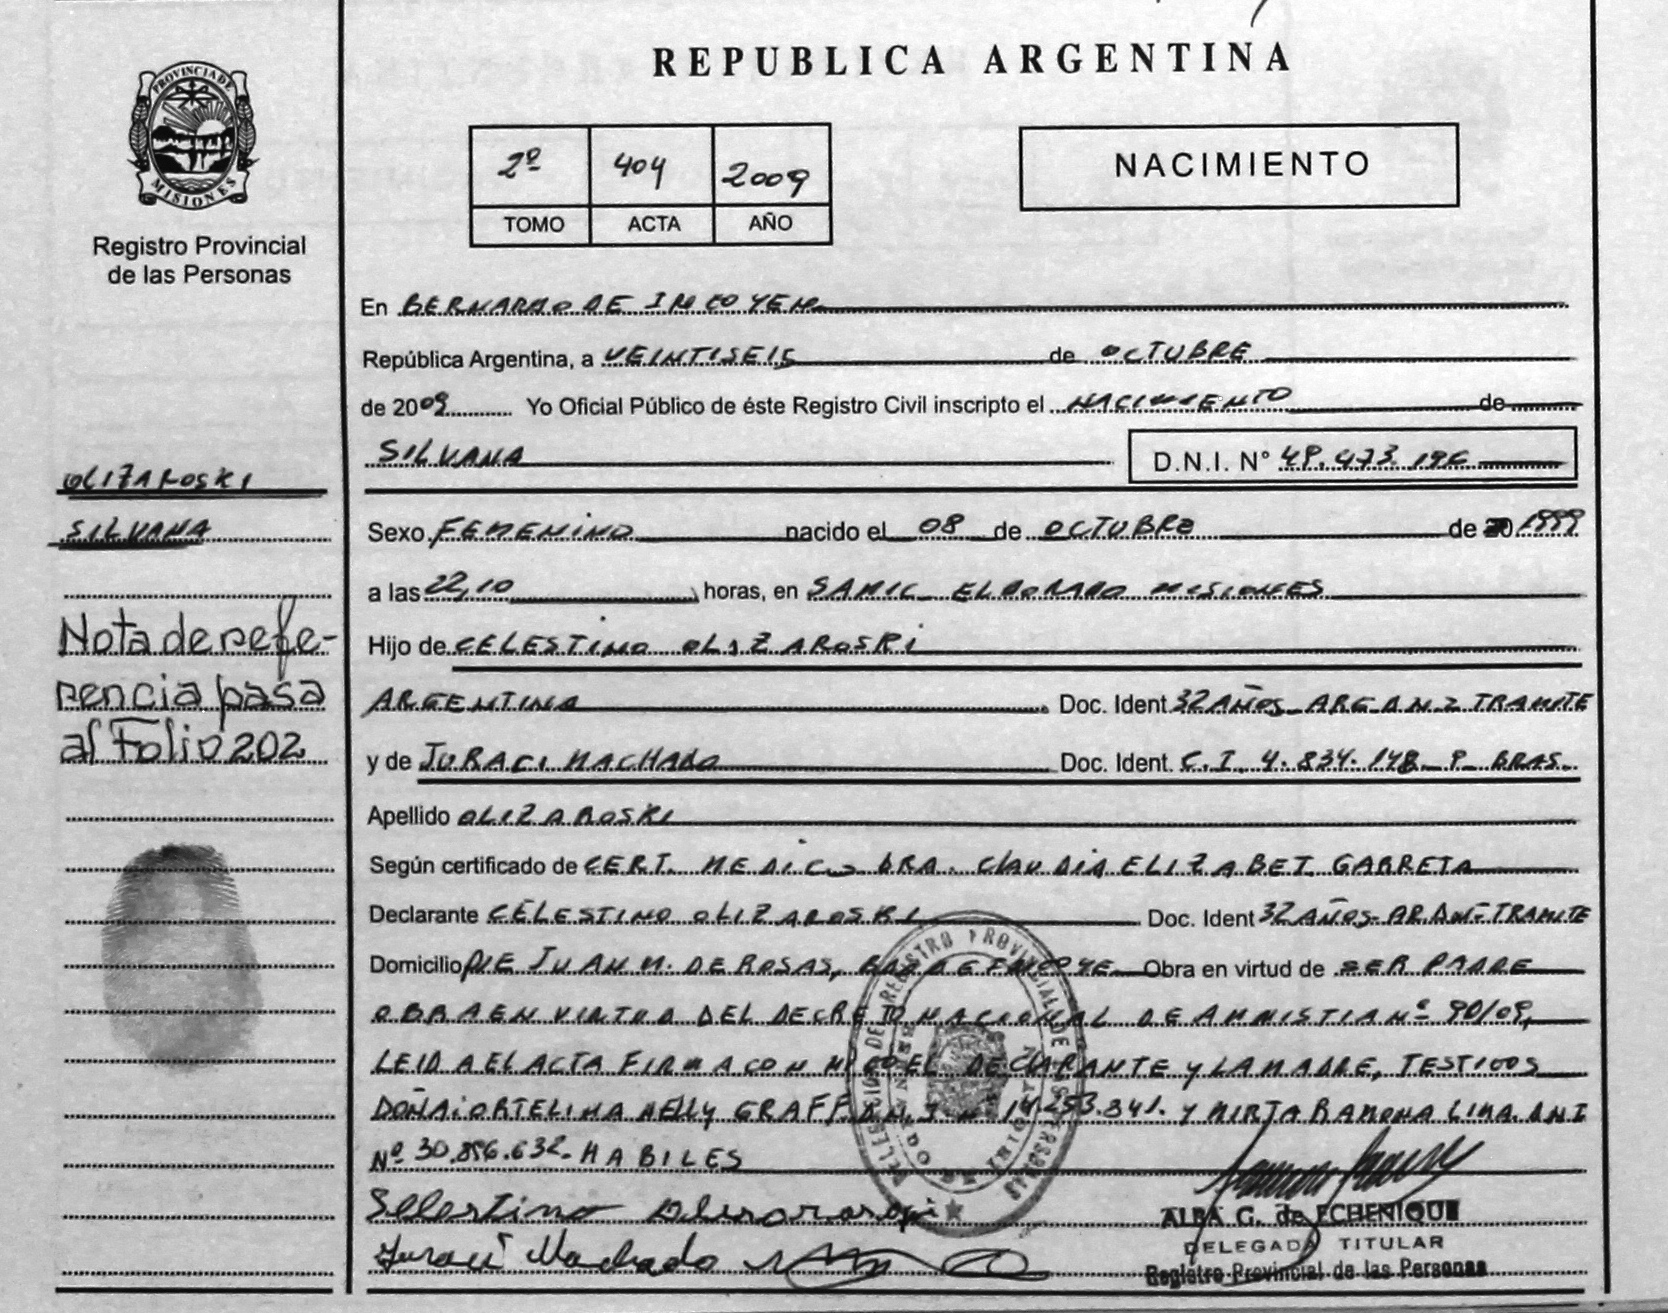 REPUBLICA ARGENTINA
PROVINCIA DE
MISIONES
Registro Provincial
de las Personas
2º 404 2009
TOMO ACTA AÑO
NACIMIENTO
En BERNARDO DE IRIGOYEN
República Argentina, a VEINTISEIS de OCTUBRE
de 2009 Yo Oficial Público de éste Registro Civil inscripto el NACIMIENTO de
SILVANA D.N.I. Nº 49.473.196
OLIZAROSKI
SILVANA
Nota de refe-
rencia pasa
al Folio 202
Sexo FEMENINO nacido el 08 de OCTUBRE de 1999
a las 22,10 horas, en SAMIC ELDORADO MISIONES
Hijo de CELESTINO OLIZAROSKI
ARGENTINA Doc. Ident 32 AÑOS ARG TRAMITE
y de JURACI MACHADO Doc. Ident. C.I. 4.834.148 P BRAS.
Apellido OLIZAROSKI
Según certificado de CERT. MEDICO DRA. CLAUDIA ELIZABET GARRETA
Declarante CELESTINO OLIZAROSKI Doc. Ident 32 AÑOS-AR.DNI-TRAMITE
Domicilio JUAN M. DE ROSAS, Obra en virtud de SER PADRE
OBRA EN VIRTUD DEL DECRETO NACIONAL DE AMNISTIA Nº 90/09,
LEIDA EL ACTA FIRMA CON MIGO EL DECLARANTE Y LA MADRE, TESTIGOS
DOÑA: ORTELINA NELLY GRAFF D.N.I. Nº 14.253.841. Y MIRTA RAMONA LIMA DNI
Nº 30.896.632. HABILES
Selestino
Juraci Machado
ALBA G. de ECHENIQUE
DELEGADA TITULAR
Registro Provincial de las Personas
REGISTRO PROVINCIAL DE LAS PERSONAS